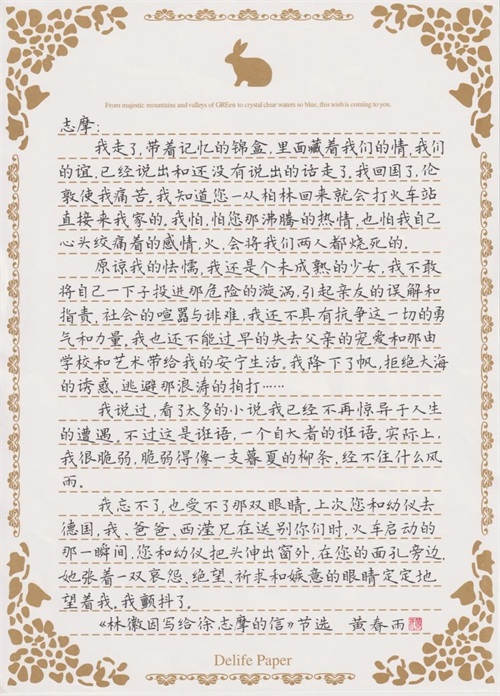 From majestic mountains and valleys of GREen to crystal clear waters so blue, this wish is coming to you.
志摩:
我走了,带着记忆的锦盒,里面藏着我们的情,我们
的谊,已经说出和还没有说出的话走了,我回国了,伦
敦使我痛苦,我知道您一从柏林回来就会打火车站
直接来我家的,我怕,怕您那沸腾的热情,也怕我自己
心头绞痛着的感情,火,会将我们两人都烧死的.
原谅我的怯懦,我还是个未成熟的少女,我不敢
将自己一下子投进那危险的漩涡,引起亲友的误解和
指责,社会的喧嚣与诽难,我还不具有抗争这一切的勇
气和力量,我也还不能过早的失去父亲的宠爱和那由
学校和艺术带给我的安宁生活,我降下了帆,拒绝大海
的诱惑,逃避那浪涛的拍打……
我说过,看了太多的小说我已经不再惊异于人生
的遭遇,不过这是诳语,一个自大者的诳语,实际上,
我很脆弱,脆弱得像一支暮夏的柳条,经不住什么风
雨.
我忘不了,也受不了那双眼睛,上次您和幼仪去
德国,我、爸爸、西滢兄在送别你们时,火车启动的
那一瞬间,您和幼仪把头伸出窗外,在您的面孔旁边,
她张着一双哀怨、绝望、祈求和嫉意的眼睛定定地
望着我,我颤抖了.
《林徽因写给徐志摩的信》节选 黄春雨
Delife Paper